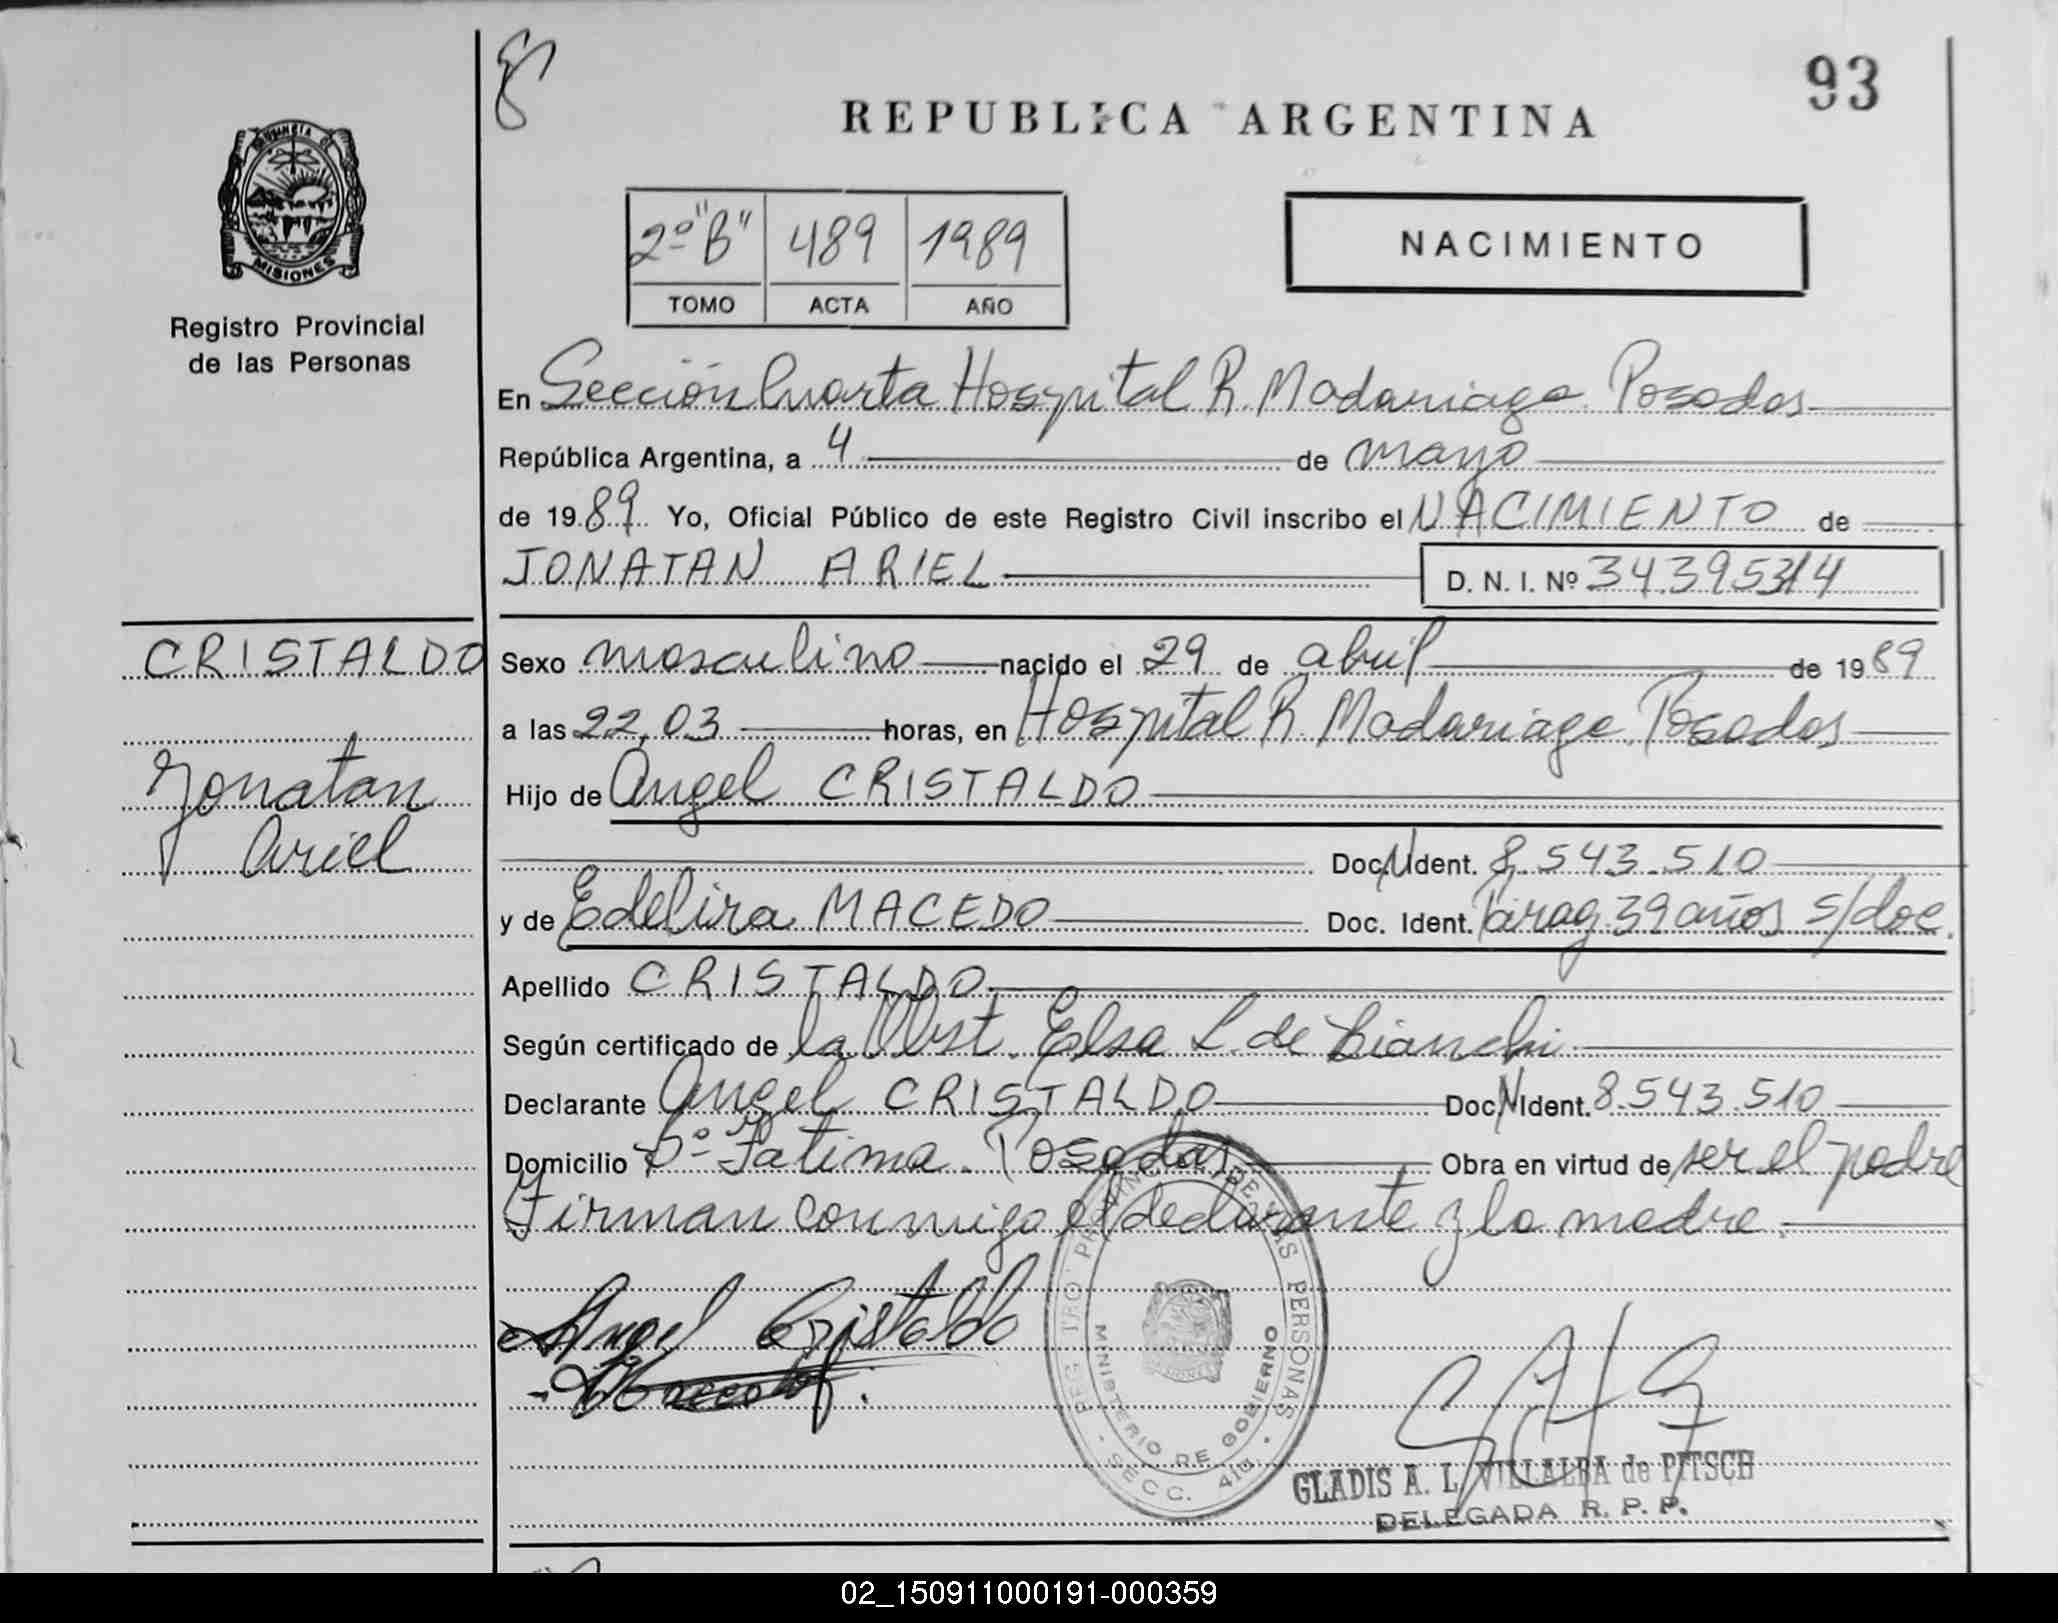 93
REPUBLICA ARGENTINA
PROVINCIA DE
MISIONES
Registro Provincial
de las Personas
2º "B" 489 1989
TOMO ACTA AÑO
NACIMIENTO
En Sección Cuarta Hospital R. Madariaga. Posadas
República Argentina, a 4 de mayo
de 1989. Yo, Oficial Público de este Registro Civil inscribo el NACIMIENTO de
JONATAN ARIEL D. N. I. Nº 34.395314
CRISTALDO
Jonatan
Ariel
Sexo masculino nacido el 29 de abril de 1989
a las 22,03 horas, en Hospital R. Madariaga. Posadas
Hijo de Angel CRISTALDO
Doc. N Ident. 8.543.510
y de Edelira MACEDO Doc. Ident. Parag. 39 años s/doc.
Apellido CRISTALDO
Según certificado de la Obst. Elsa L. de Bianchi
Declarante Angel CRISTALDO Doc. N Ident. 8.543.510
Domicilio Bº Fatima. Posadas Obra en virtud de ser el padre
Firman conmigo el declarante y la madre.
Angel Cristaldo
REGISTRO PROVINCIAL DE LAS PERSONAS
MINISTERIO DE GOBIERNO
SECC. 4ta.
GLADIS A. L. VILLALBA de PITSCH
DELEGADA R. P. P.
02_150911000191-000359